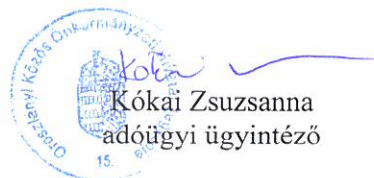 Oroszlányi Közös Önkormányzati Hivatal
15.
Kókai Zsuzsanna
adóügyi ügyintéző